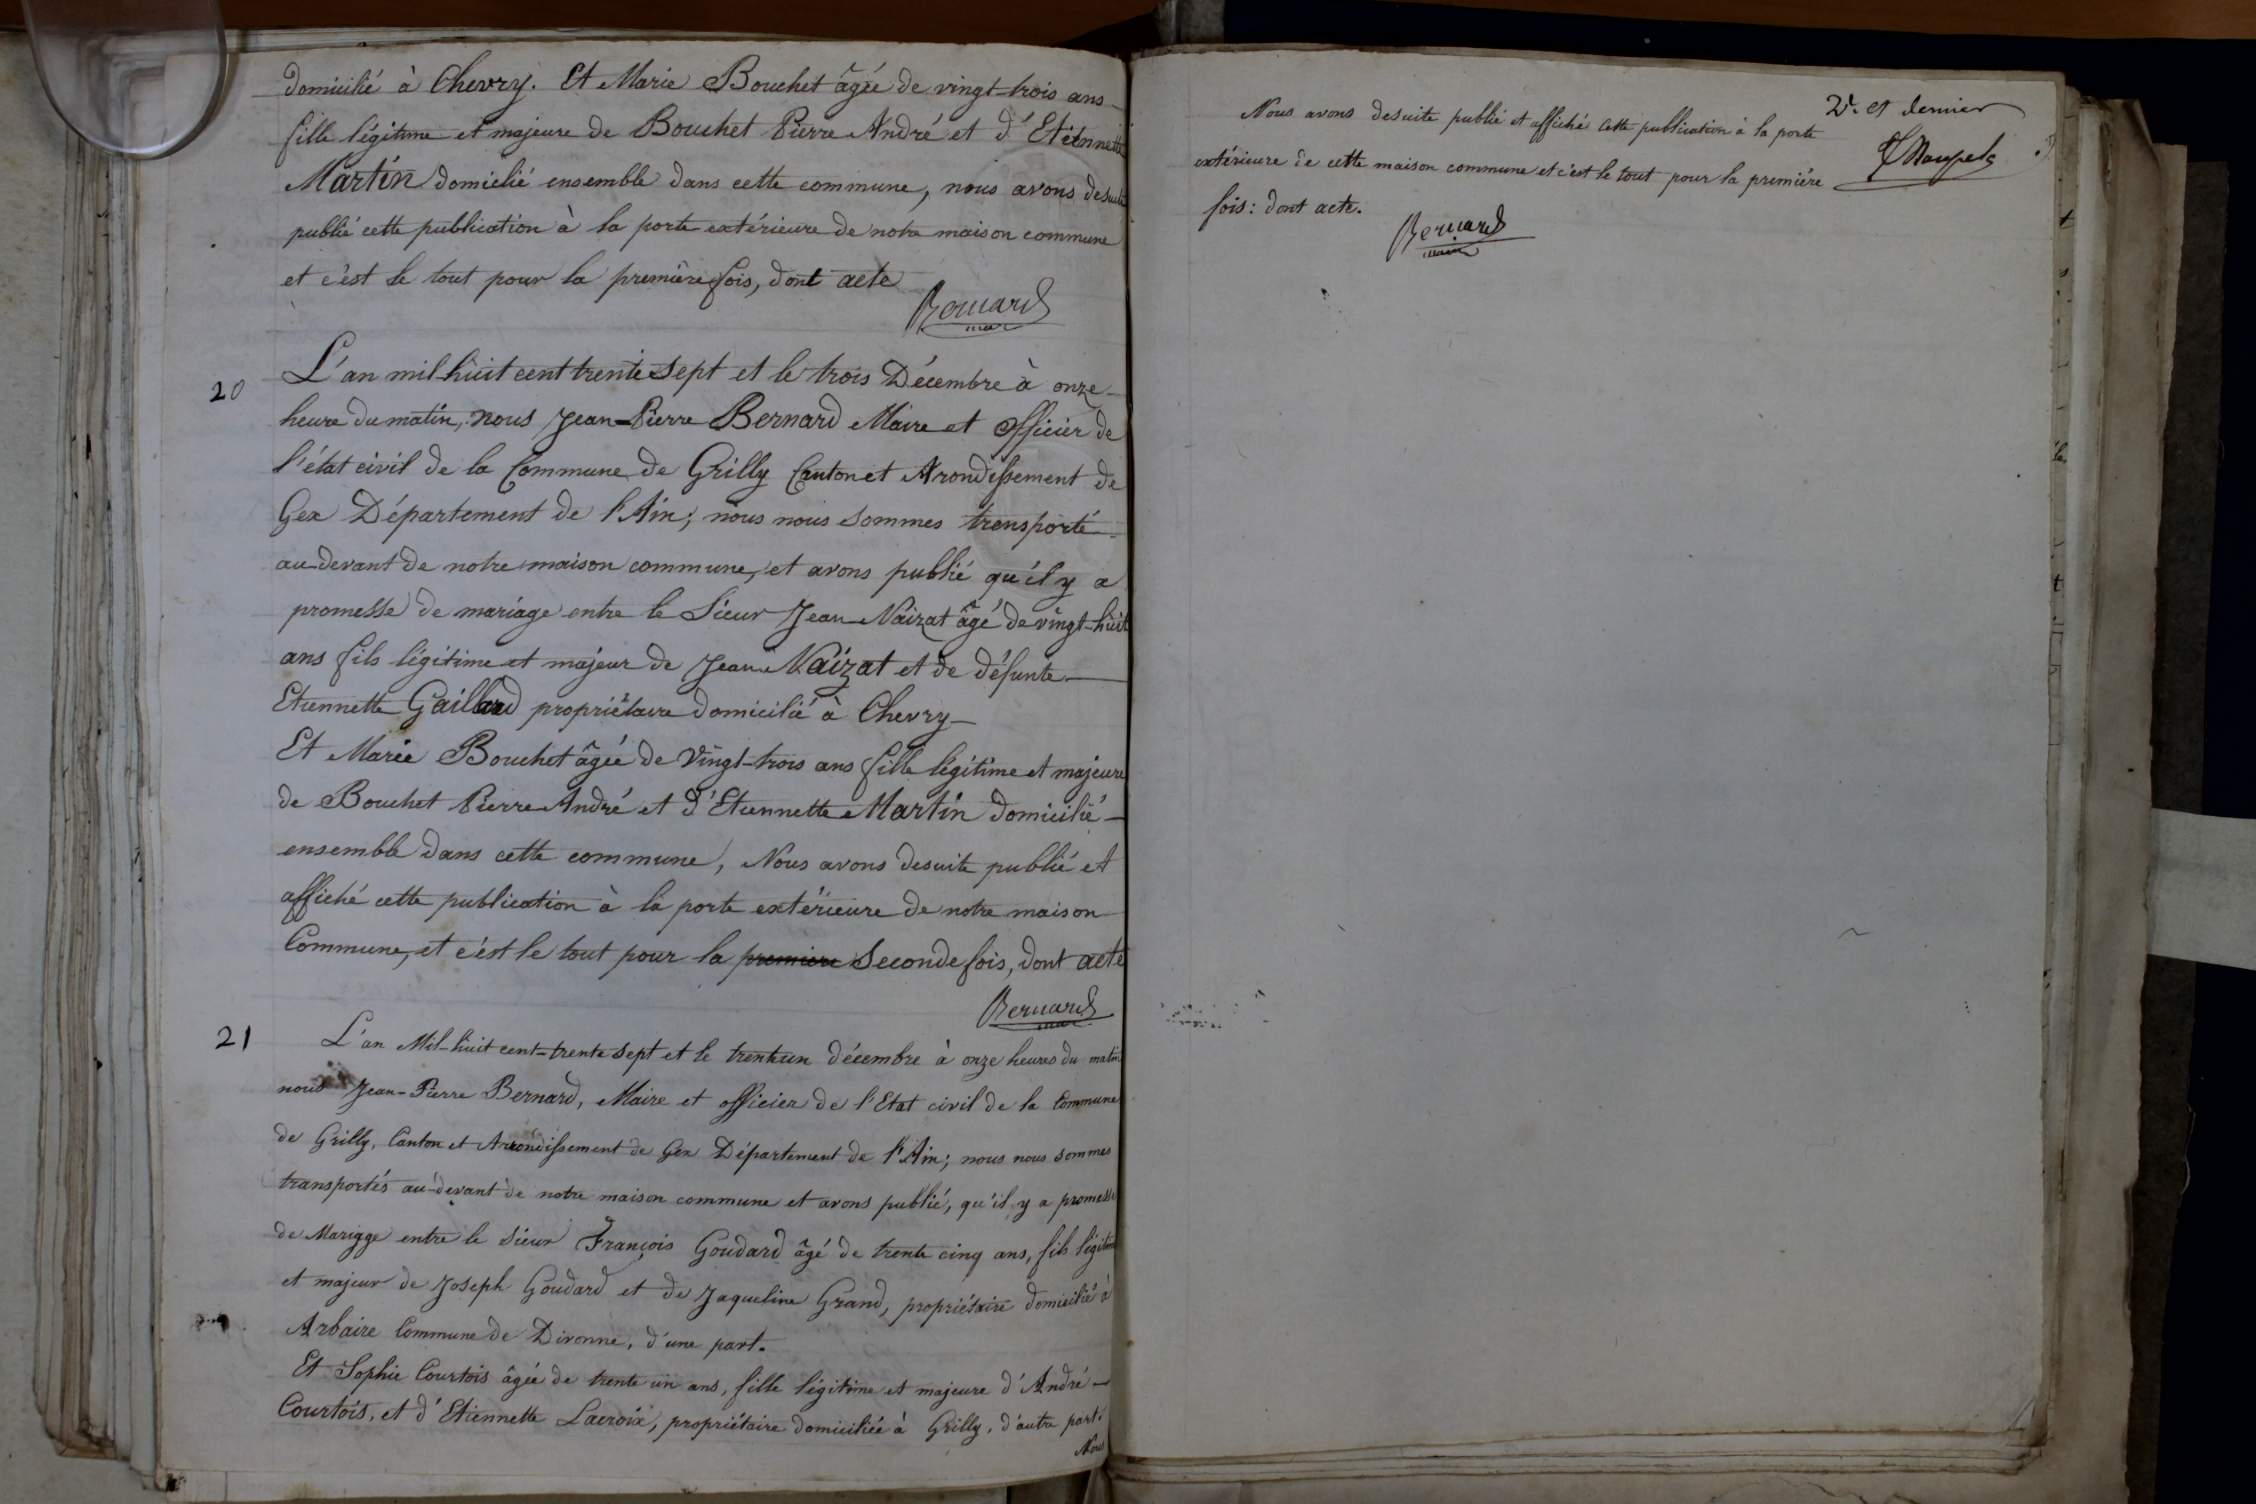 domicilié à Chevry. Et Marie Bouchet âgée de vingt-trois ans
fille légitime et majeure de Bouchet Pierre André et d'Etiennette
Martin domicilié ensemble dans cette commune, nous avons desuite
publié cette publication à la porte extérieure de notre maison commune
et c'est le tout pour la première fois, dont acte
Bernard
maire
20
L'an mil huit cent trente sept et le trois Décembre à onze
heure du matin, nous Jean-Pierre Bernard Maire et officier de
l'état civil de la Commune de Grilly Canton et Arondissement de
Gex Département de l'Ain; nous nous sommes transporté
au devant de notre maison commune, et avons publié qu'il y a
promesse de mariage entre le Sieur Jean Naizat âgé de vingt-huit
ans fils légitime et majeur de Jean Naizat et de défunte
Etiennette Gaillard propriétaire domicilié à Chevry
Et Marie Bouchet âgée de Vingt-trois ans fille légitime et majeure
de Bouchet Pierre André et d'Etiennette Martin domicilié
ensemble dans cette commune, Nous avons desuite publié et
affiché cette publication à la porte extérieure de notre maison
Commune, et c'est le tout pour la premiere Seconde fois, dont acte
Bernard
maire
21
L'an Mil-huit cent-trente sept et le trenteun décembre à onze heures du matin
nous Jean-Pierre Bernard, Maire et officier de l'Etat civil de la Commune
de Grilly, Canton et Arrondissement de Gex Département de l'Ain; nous nous sommes
transportés au-devant de notre maison commune et avons publié, qu'il y a promesse
de Mariage entre le Sieur François Goudard âgé de trente cinq ans, fils légitime
et majeur de Joseph Goudard et de Jaqueline Grand, propriétaire domicilié à
Arbaire Commune de Divonne, d'une part.
Et Sophie Courtois âgée de trente un ans, fille légitime et majeure d'André
Courtois, et d'Etiennette Lacroix, propriétaire domiciliée à Grilly, d'autre part.
Nous
Nous avons desuite publié et affiché cette publication à la porte
extérieure de cette maison commune et c'est le tout pour la première
fois: dont acte.
Bernard
maire
2e. et dernier